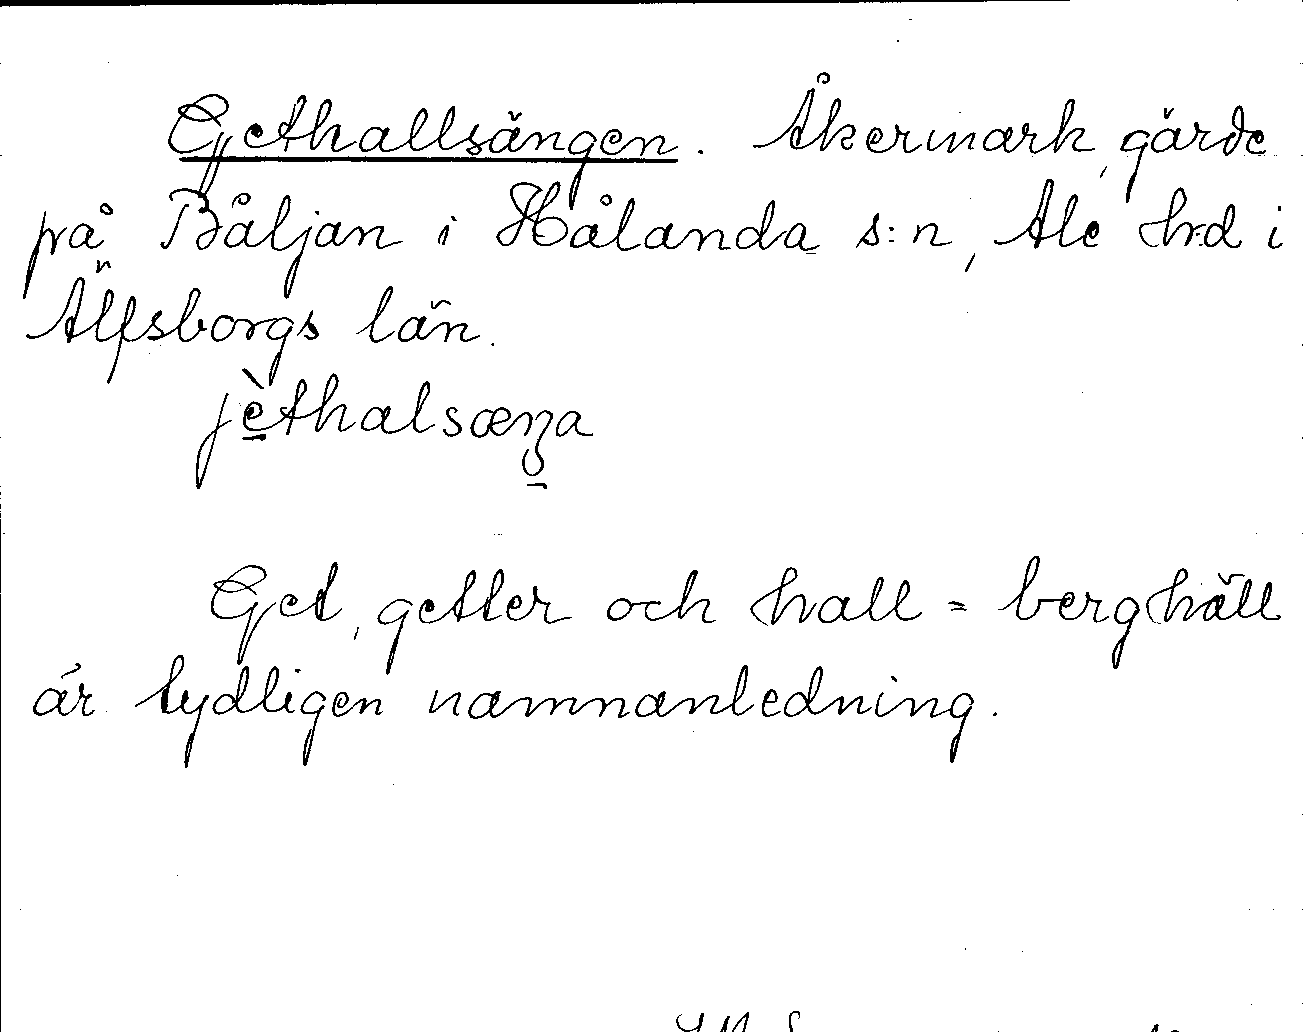 Gethallsängen. Åkermark, gärde
på Båljan i Hålanda s:n, Ale hd i
Älfsborgs län.
jèthalsæŋa
Get, getter och hall = berghäll
är tydligen namnanledning.